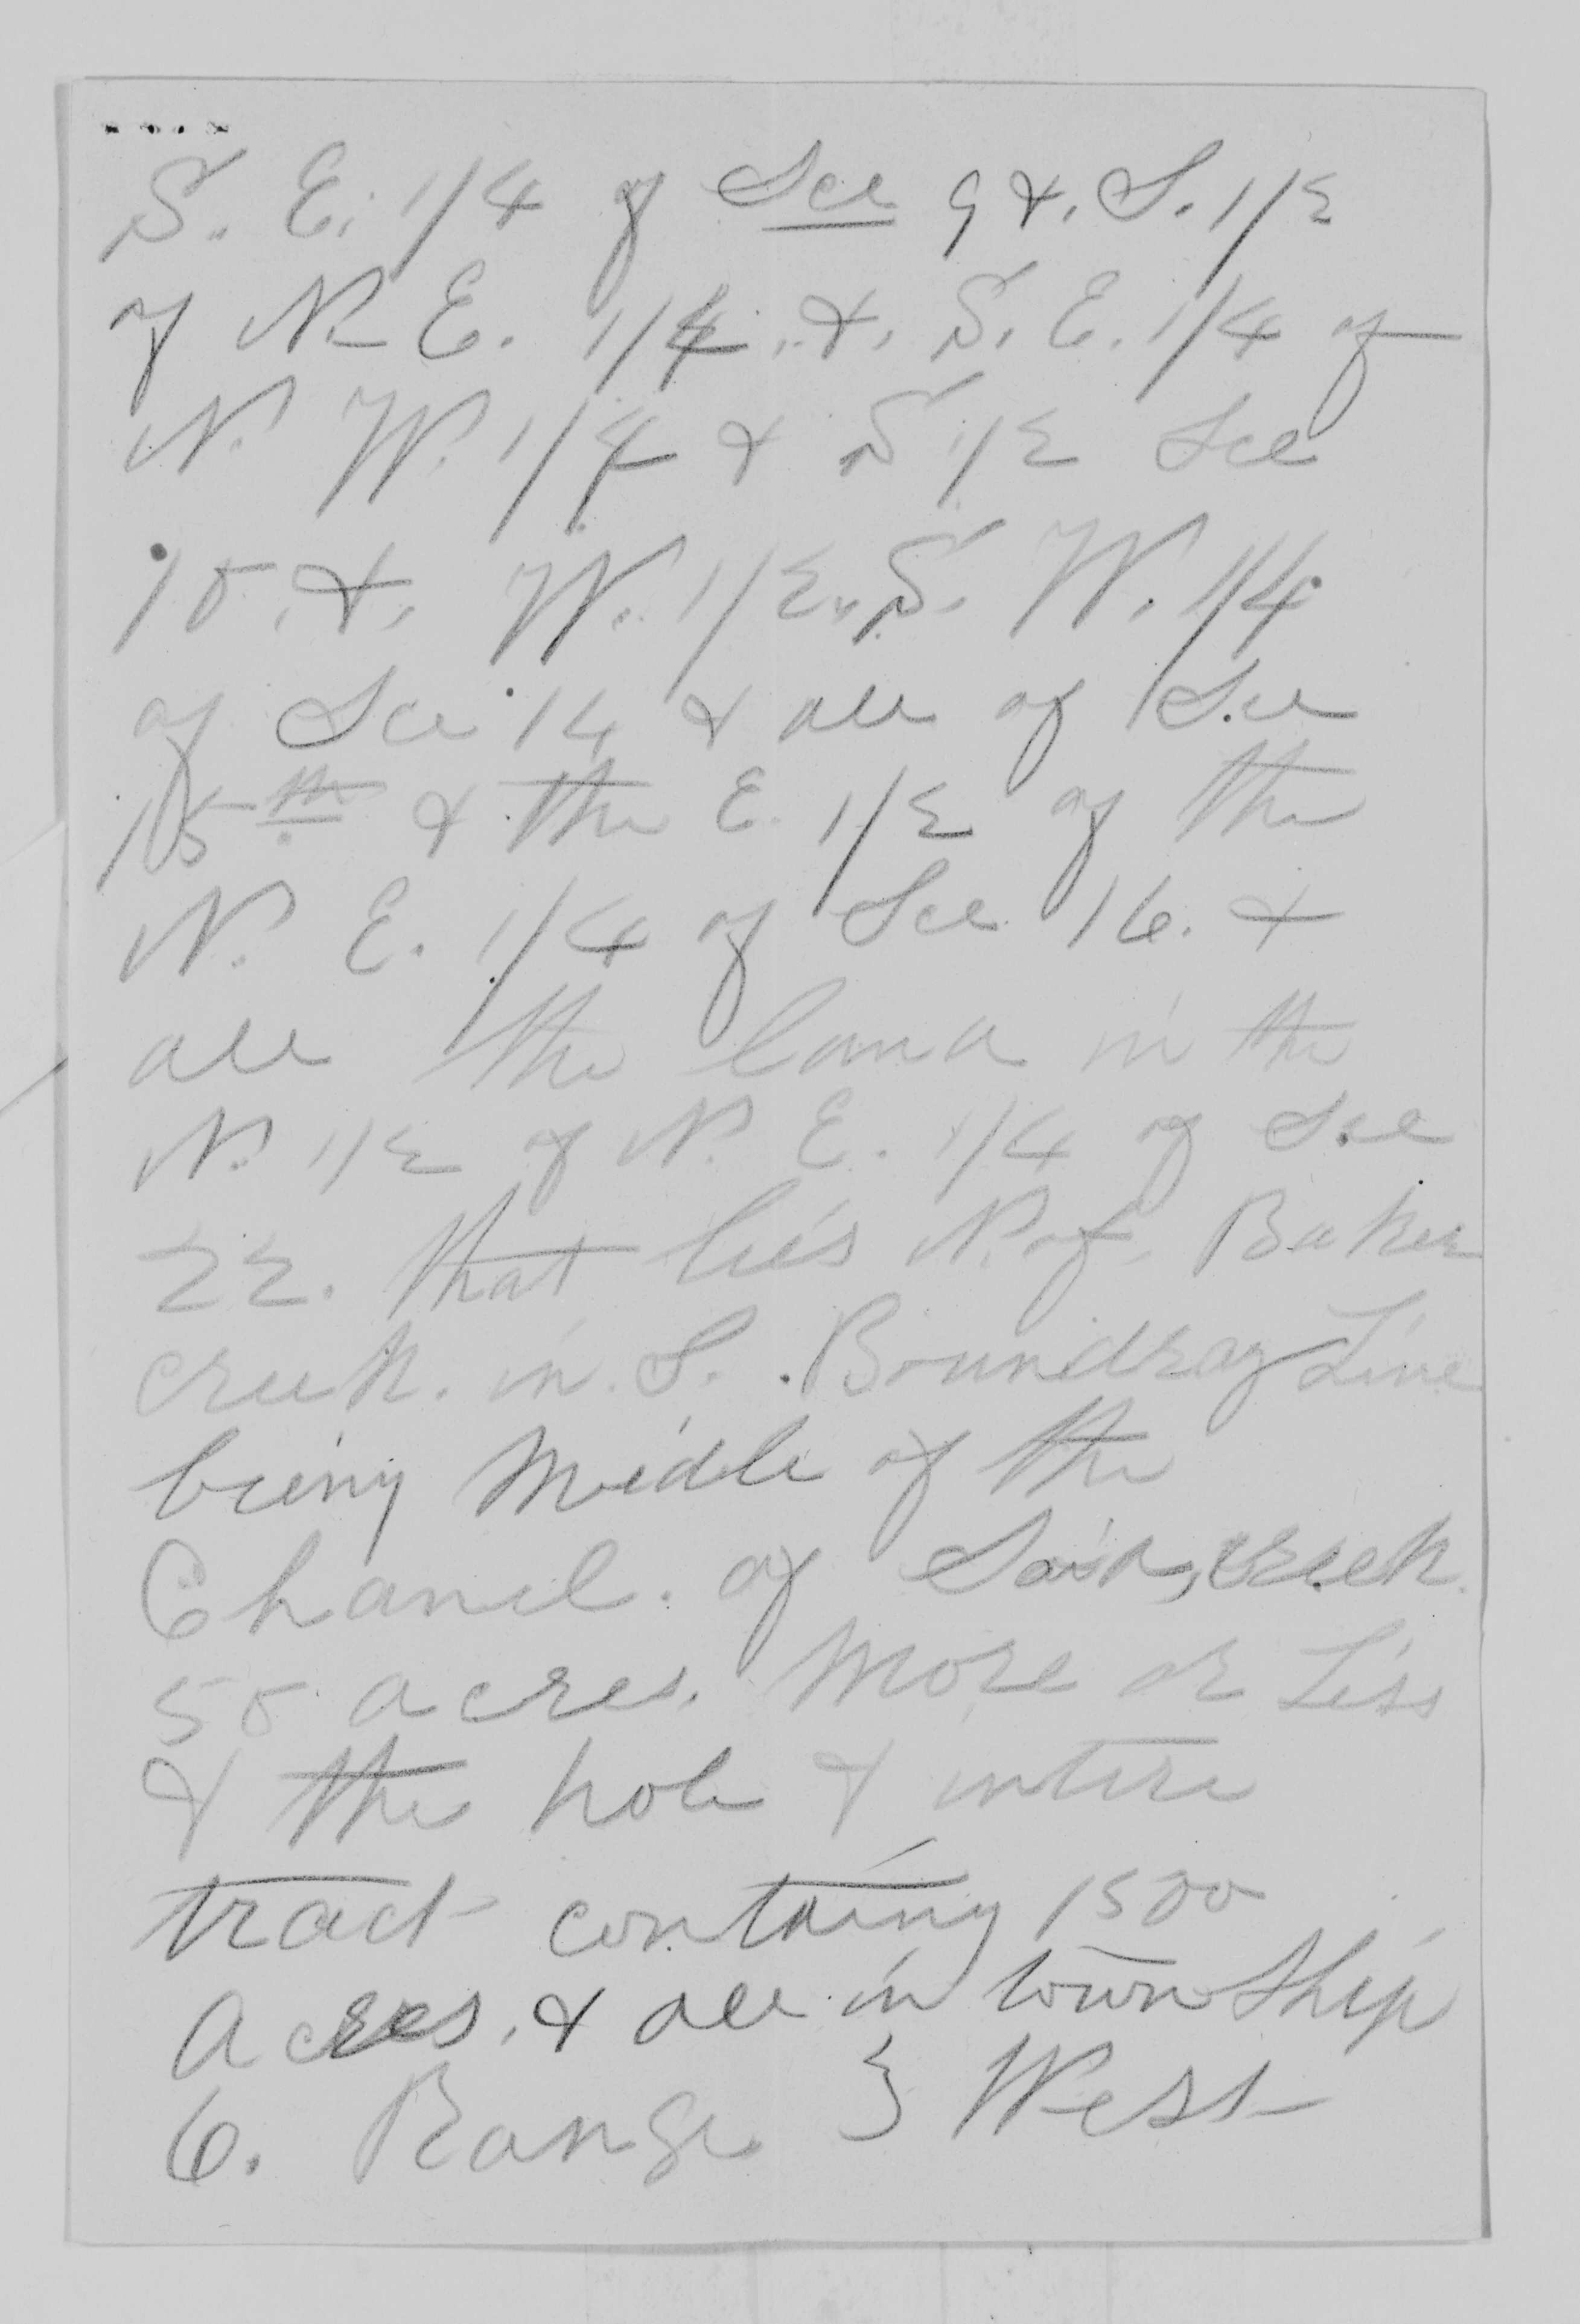 S. E. 1/4 of Sec 9 &. S. 1/2
of N E. 1/4. &. S. E. 1/4 of
N. W. 1/4 & S 1/2 Sec
10. &. W. 1/2. S. W. 1/4
of Sec 14 & all of Sec
15th & the E. 1/2 of the
N. E. 1/4 of Sec 16. &
all the land in the
N. 1/2 of N. E. 1/4 of Sec
22. that lies N. of Baker
creek. in. S. Boundray Line
being Midle of the
Chanel. of Said, creek.
50 acres. More or Less
& the hole & intire
tract containg 1500
acres. & all in township
6. Range 3 West